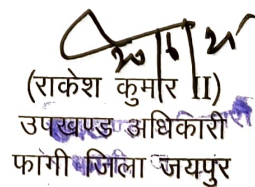 (राकेश कुमार II)
उपखण्ड अधिकारी
फांगी जिला जयपुर